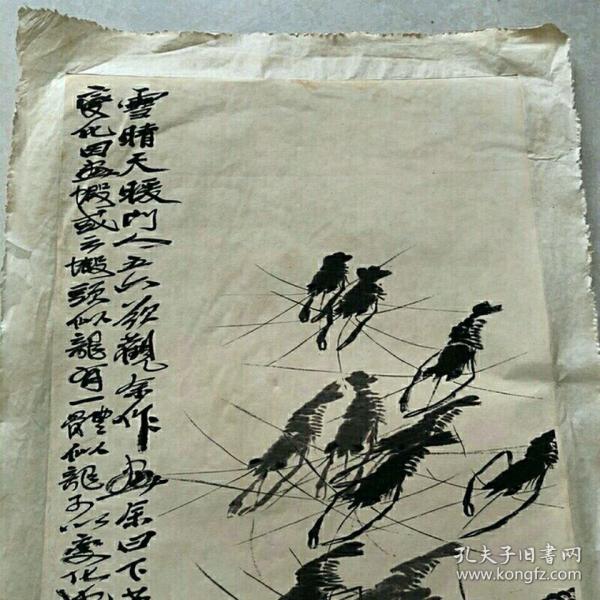 雪晴天暖門人五六欲觀余作畫余曰下
變化因畫蝦或云蝦頭似龍有一體似龍可以變化
孔夫子旧书网
www.kongfz.com